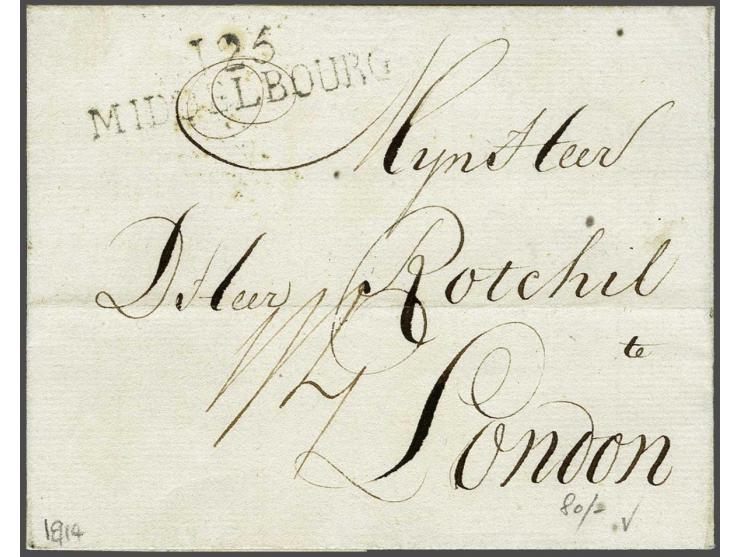 125
MIDDELBOURG
MynHeer
DHeer Rotchil
te
London
80/-
1814